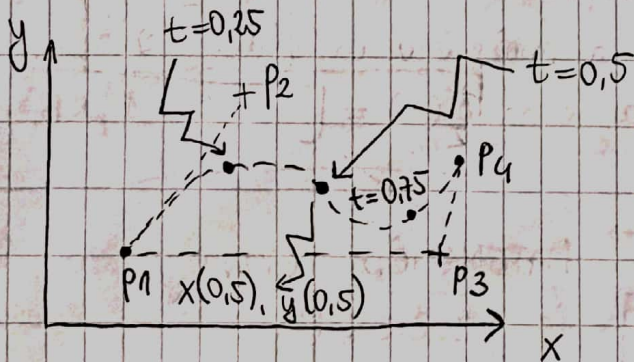 y
t=0,25
P2
t=0,5
P4
t=0,75
P1
x(0,5), y(0,5)
P3
x